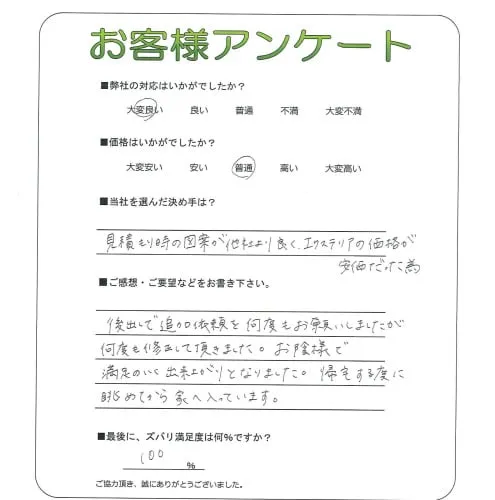 お客様アンケート
■弊社の対応はいかがでしたか？
大変良い 良い 普通 不満 大変不満
■価格はいかがでしたか？
大変安い 安い 普通 高い 大変高い
■当社を選んだ決め手は？
見積もり時の図案が他社より良く、エクステリアの価格が
安価だった為
■ご感想・ご要望などをお書き下さい。
後出しで追加依頼を何度もお願いしましたが
何度も修正して頂きました。お陰様で
満足のいく出来上がりとなりました。帰宅する度に
眺めてから家へ入っています。
■最後に、ズバリ満足度は何％ですか？
100 %
ご協力頂き、誠にありがとうございました。